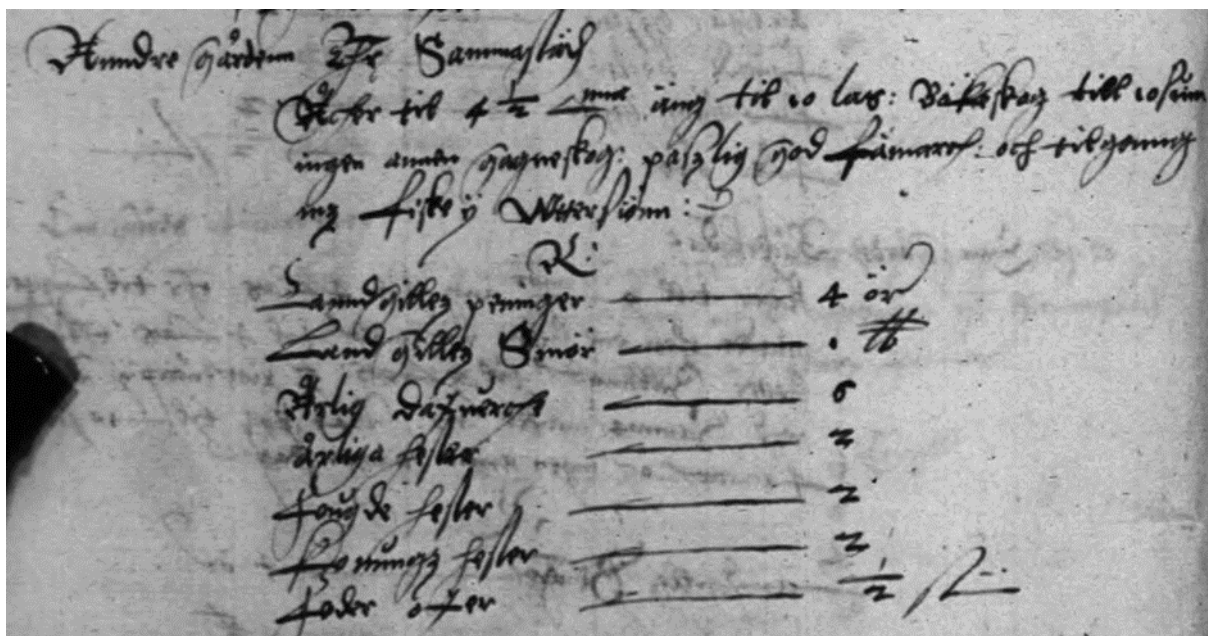 Anndre gårdenn Thr Sammastädh
Åcher til 4 1/2 äng til 10 las: Bökeskog till 10 suin
ingen annen gagneskog: paszlig god fämarch: och tilgonng
ing fiske ÿ Wttersiönn:
R:
Lanndgillez peninger 4 ör
Land gillez Smör 1 ℔
Årlig dagzuercke 6
årliga hester 2
fougde hester 2
Konungz hester 2
foder oxer 1/2 st